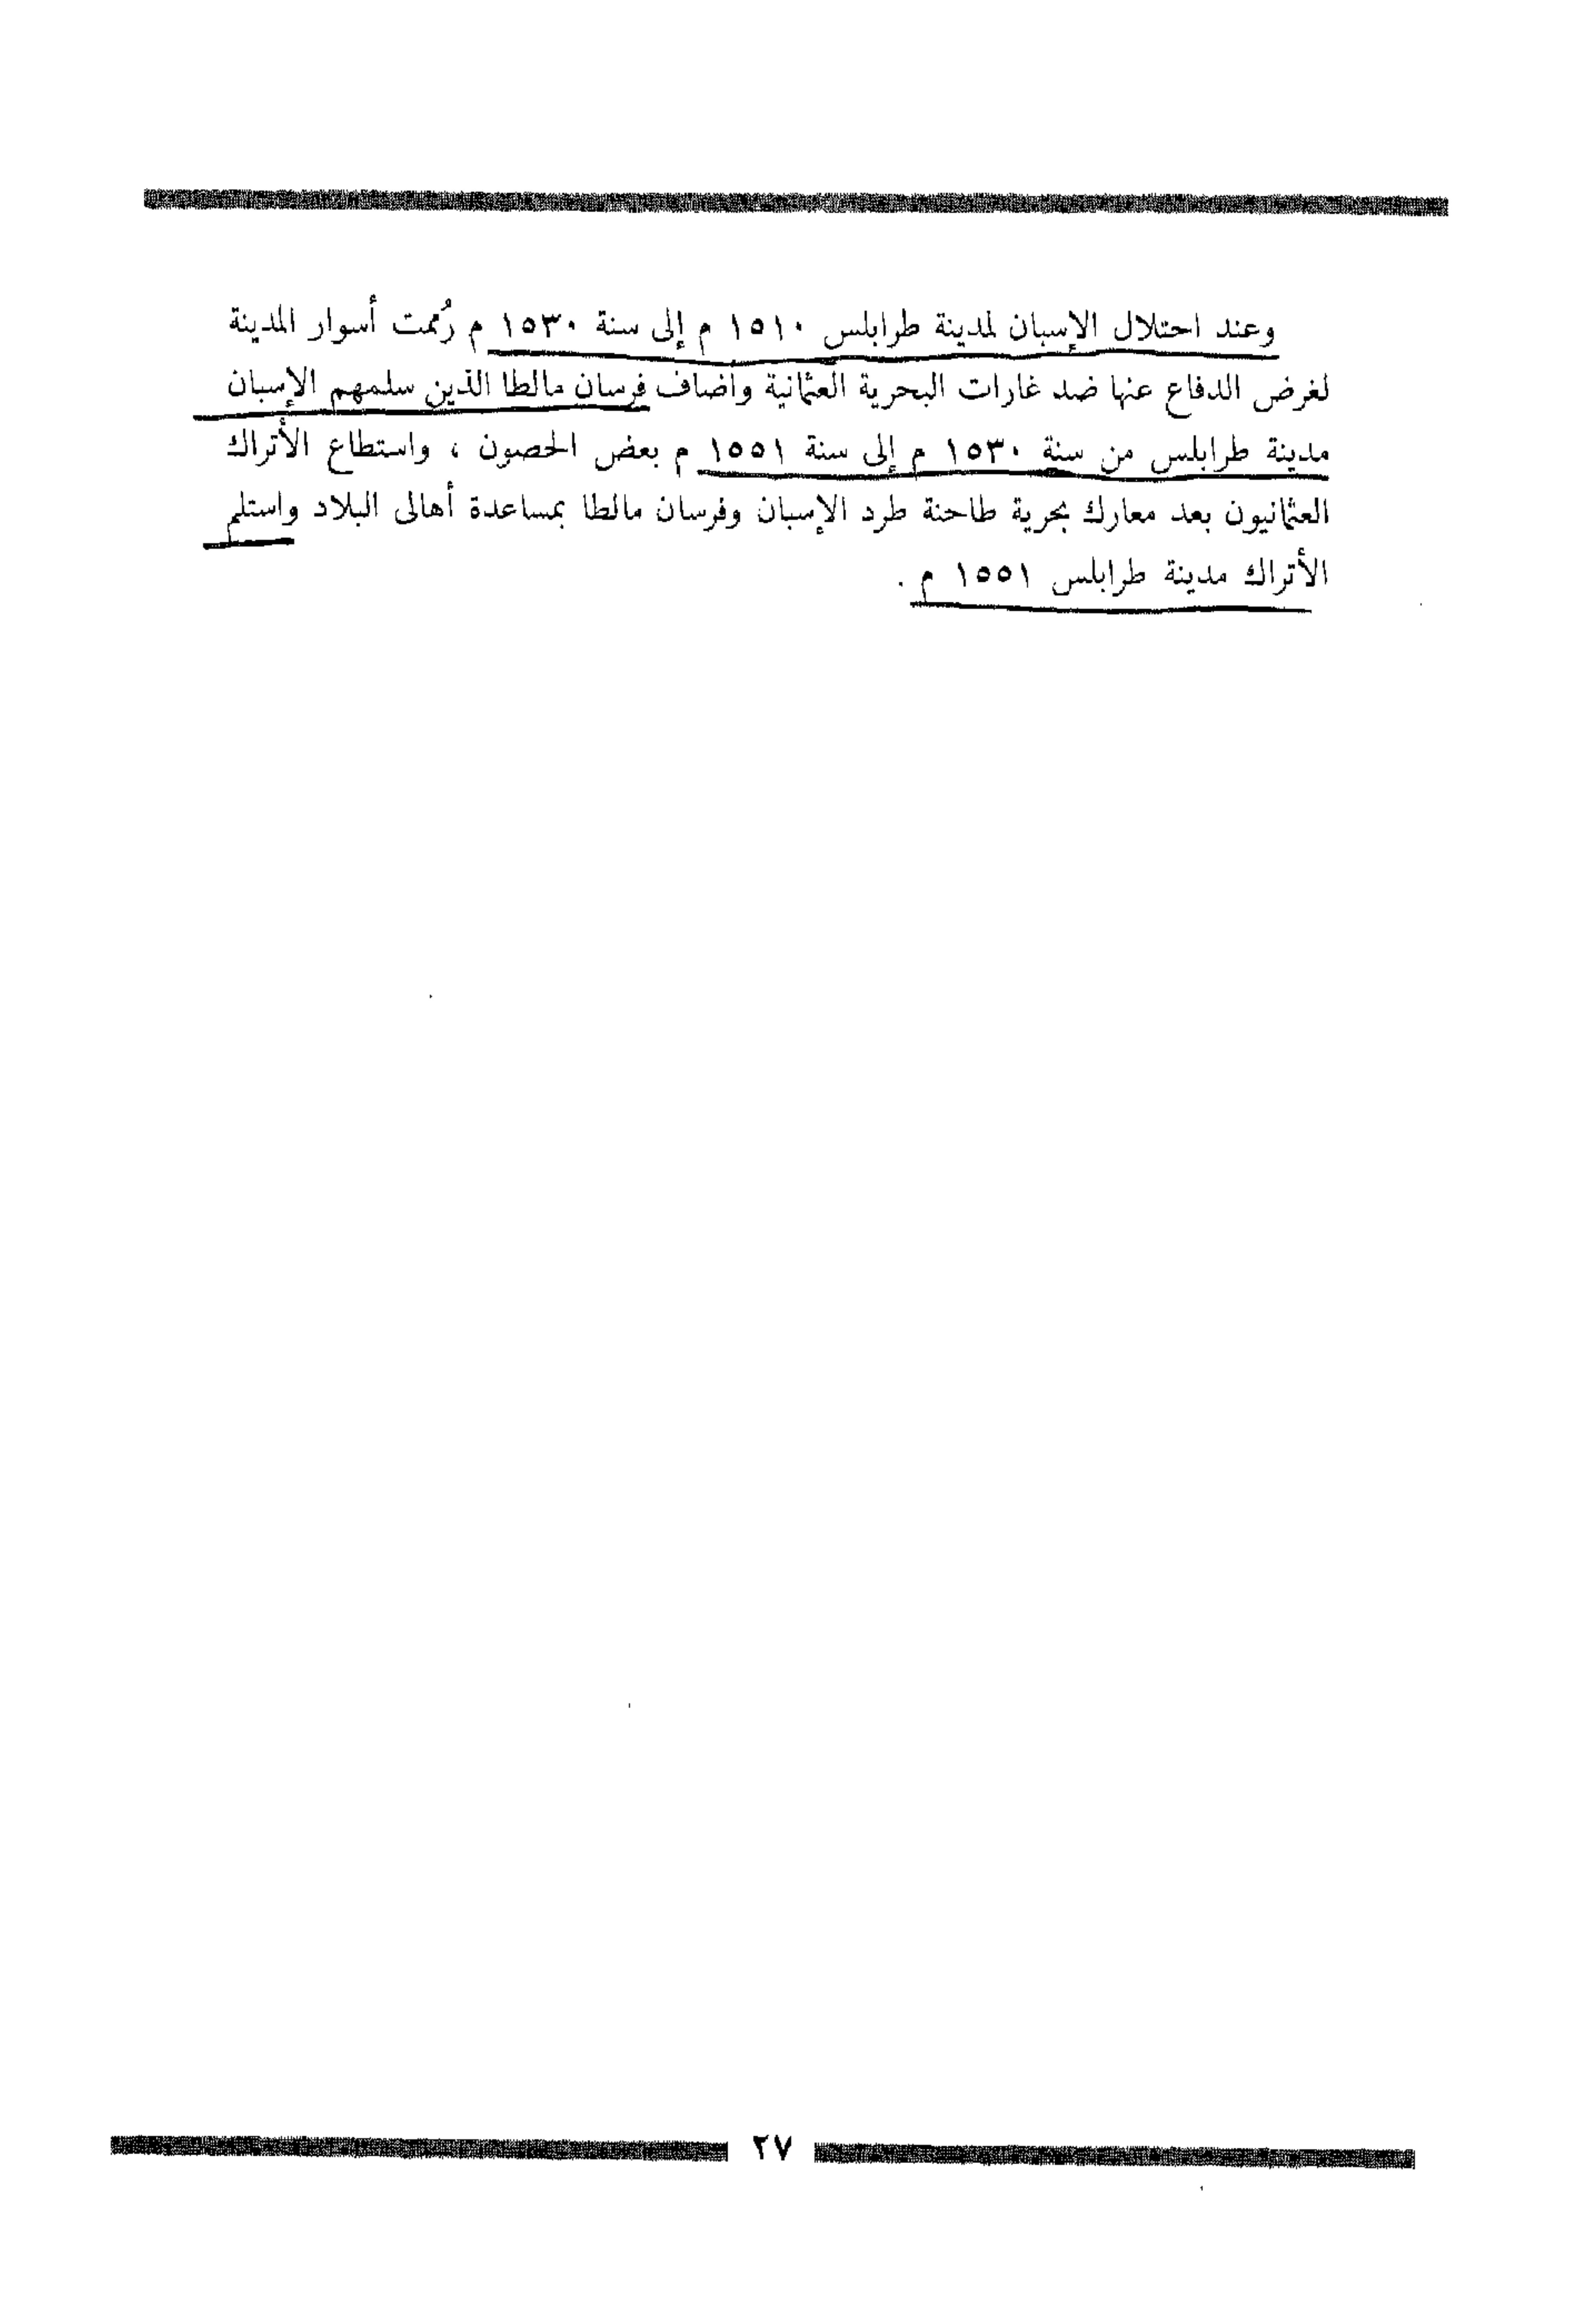 وعند احتلال الإسبان لمدينة طرابلس ١٥١٠ م إلى سنة ١٥٣٠ م رُممت أسوار المدينة
لغرض الدفاع عنها ضد غارات البحرية العثمانية واضاف فرسان مالطا الذين سلمهم الإسبان
مدينة طرابلس من سنة ١٥٣٠ م إلى سنة ١٥٥١ م بعض الحصون ، واستطاع الأتراك
العثمانيون بعد معارك بحرية طاحنة طرد الإسبان وفرسان مالطا بمساعدة أهالى البلاد واستلم
الأتراك مدينة طرابلس ١٥٥١ م .
٢٧